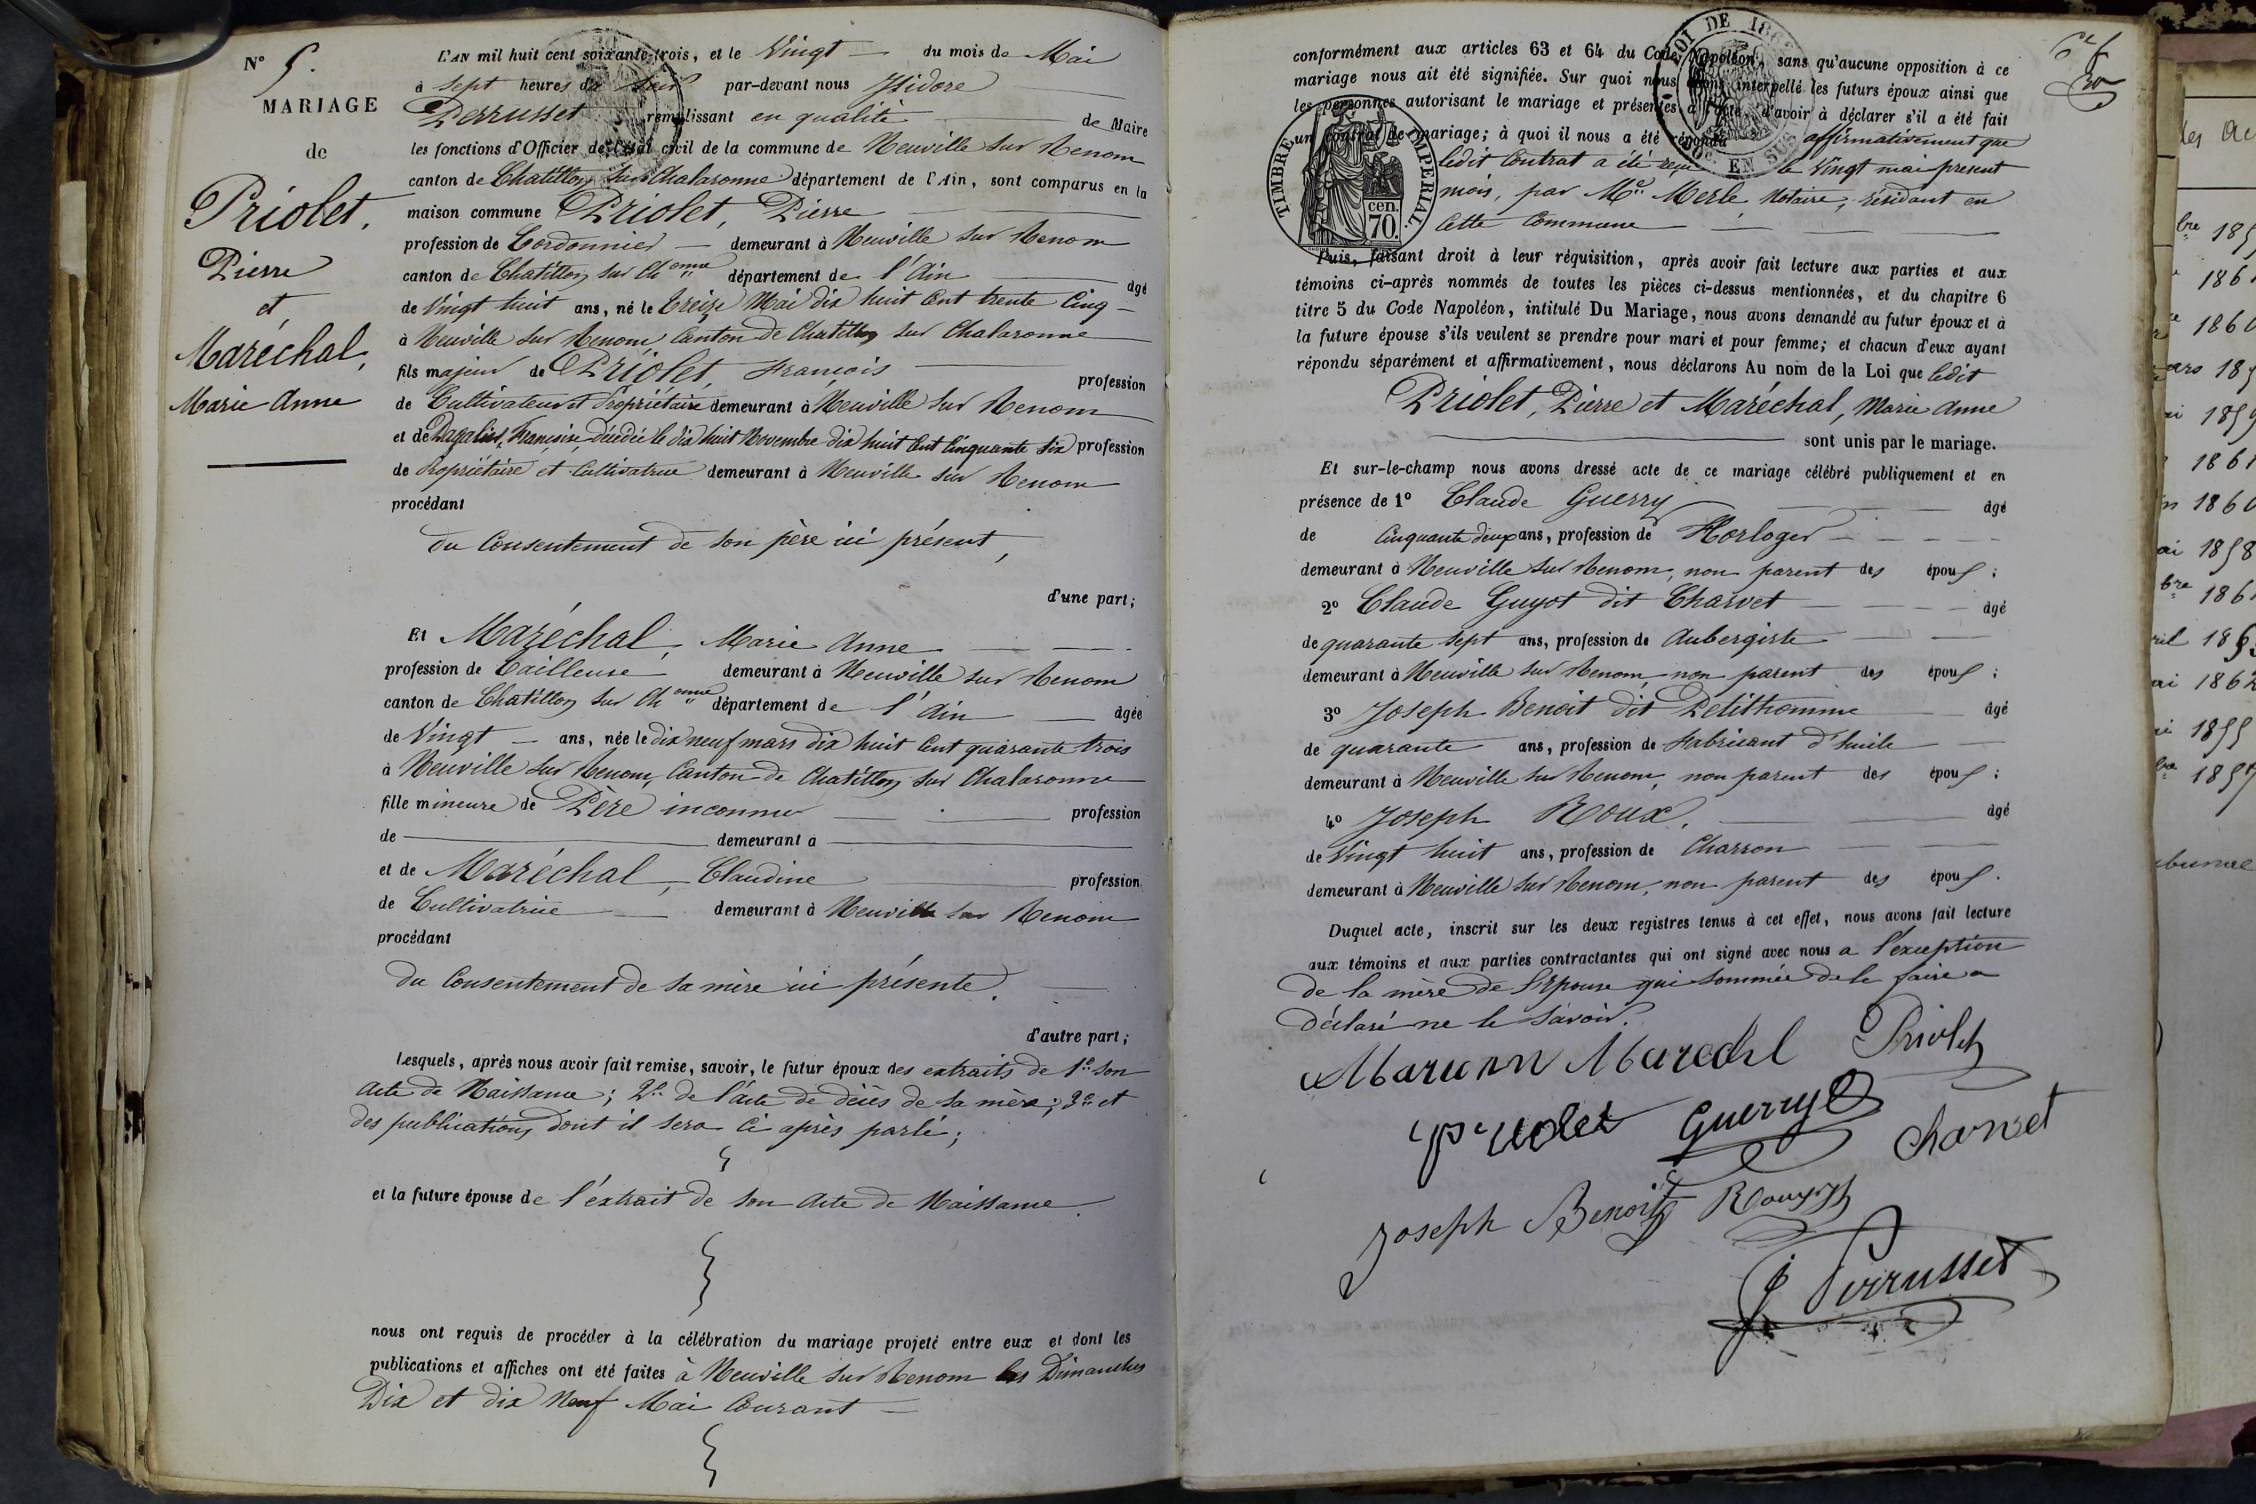 N° 5.
MARIAGE
de
Priolet,
Pierre
et
Maréchal,
Marie Anne
L'AN mil huit cent soixante-trois, et le Vingt du mois de Mai
à sept heures du soir par-devant nous Isidore
Perrusset remplissant en qualité de Maire
les fonctions d'Officier de l'état civil de la commune de Neuville sur Renom
canton de Chatillon sur Chalaronne département de l'Ain, sont comparus en la
maison commune Priolet, Pierre
profession de Cordonnier demeurant à Neuville sur Renom
canton de Chatillon sur Ch onne département de l'Ain âgé
de Vingt huit ans, né le treize Mai dix huit Cent trente Cinq
à Neuville sur Renom Canton de Chatillon sur Chalaronne
fils majeur de Priolet, François profession
de Cultivateur et Propriétaire demeurant à Neuville sur Renom
et de Françoise, décédée le dix huit Novembre dix huit Cent Cinquante Six profession
de Propriétaire et Cultivatrice demeurant à Neuville sur Renom
procédant
du Consentement de son père ici présent,
d'une part;
Et Maréchal, Marie Anne
profession de Tailleuse demeurant à Neuville sur Renom
canton de Chatillon sur Ch onne département de l'Ain âgée
de Vingt ans, née le dix neuf mars dix huit Cent quarante trois
à Neuville sur Renom, Canton de Chatillon sur Chalaronne
fille mineure de Père inconnu profession
de demeurant à
et de Maréchal, Claudine profession
de Cultivatrice demeurant à Neuville sur Renom
procédant
du Consentement de sa mère ici présente.
d'autre part;
Lesquels, après nous avoir fait remise, savoir, le futur époux des extraits de 1° son
acte de Naissance; 2° de l'acte de décès de sa mère; 3° et
des publications dont il sera Ci après parlé;
et la future épouse de l'extrait de son acte de Naissance.
nous ont requis de procéder à la célébration du mariage projeté entre eux et dont les
publications et affiches ont été faites à Neuville sur Renom les Dimanches
Dix et dix Neuf Mai Courant
conformément aux articles 63 et 64 du Code Napoléon, sans qu'aucune opposition à ce
mariage nous ait été signifiée. Sur quoi nous avons interpellé les futurs époux ainsi que
les personnes autorisant le mariage et présentes à l'acte, d'avoir à déclarer s'il a été fait
un contrat de mariage; à quoi il nous a été répondu affirmativement que
ledit Contrat a été reçu le Vingt mai présent
mois, par Me Merle, Notaire, résidant en
Cette Commune
TIMBRE IMPERIAL.
cen.
70.
LOI DE 18
EN SUS
Puis, faisant droit à leur réquisition, après avoir fait lecture aux parties et aux
témoins ci-après nommés de toutes les pièces ci-dessus mentionnées, et du chapitre 6
titre 5 du Code Napoléon, intitulé Du Mariage, nous avons demandé au futur époux et à
la future épouse s'ils veulent se prendre pour mari et pour femme; et chacun d'eux ayant
répondu séparément et affirmativement, nous déclarons Au nom de la Loi que ledit
Priolet, Pierre et Maréchal, Marie Anne
sont unis par le mariage.
Et sur-le-champ nous avons dressé acte de ce mariage célébré publiquement et en
présence de 1° Claude Guerry âgé
de Cinquante deux ans, profession de Horloger
demeurant à Neuville sur Renom, non parent des époux;
2° Claude Guyot dit Charvet âgé
de quarante sept ans, profession de Aubergiste
demeurant à Neuville sur Renom, non parent des époux;
3° Joseph Benoit dit Petithomme âgé
de quarante ans, profession de Fabricant d'huile
demeurant à Neuville sur Renom, non parent des époux;
4° Joseph Roux. âgé
de Vingt huit ans, profession de Charron
demeurant à Neuville sur Renom, non parent des époux.
Duquel acte, inscrit sur les deux registres tenus à cet effet, nous avons fait lecture
aux témoins et aux parties contractantes qui ont signé avec nous a l'exception
de la mère de l'Epouse qui sommée de le faire a
déclaré ne le Savoir.
Mariann Marechl Priolet
Priolet Guerry
Charvet
Joseph Benoit Roux
J Perrusset